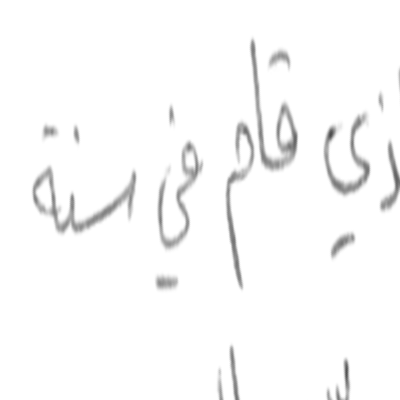 ذي قام في سنة